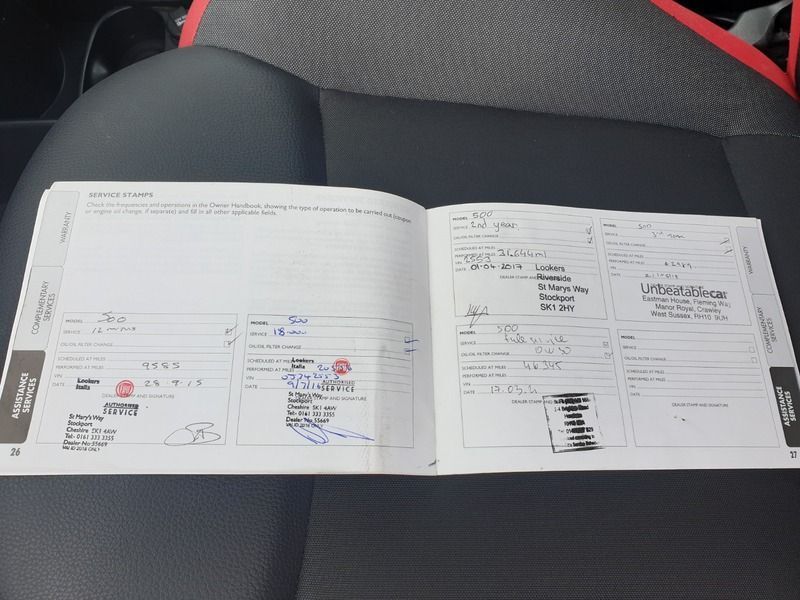 SERVICE STAMPS
Check the frequencies and operations in the Owner Handbook, showing the type of operation to be carried out (coupon
or engine oil change, if separate) and fill in all other applicable fields.
WARRANTY
COMPLEMENTARY
SERVICES
ASSISTANCE
SERVICES
MODEL 500
SERVICE 12 mths
OIL/OIL FILTER CHANGE
SCHEDULED AT MILES
PERFORMED AT MILES 9585
VIN
DATE 28.9.15
DEALER STAMP AND SIGNATURE
Lookers
Italia
AUTHORISED
SERVICE
St Marys Way
Stockport
Cheshire SK1 4AW
Tel:- 0161 333 3355
Dealer No 55669
VALID 2018 ONLY
MODEL 500
SERVICE 18000
OIL/OIL FILTER CHANGE
SCHEDULED AT MILES
PERFORMED AT MILES
VIN
DATE 9/7/16
Lookers
Italia
AUTHORISED
SERVICE
St Mary's Way
Stockport
Cheshire SK1 4AW
Tel:- 0161 333 3355
Dealer No 55669
VALID 2018 ONLY
26
MODEL 500
SERVICE 2nd year
OIL/OIL FILTER CHANGE
SCHEDULED AT MILES
PERFORMED AT MILES 36,644ml
VIN 2553
DATE 01-04-2017
Lookers
Riverside
St Marys Way
Stockport
SK1 2HY
MODEL 500
SERVICE 3rd
OIL/OIL FILTER CHANGE
SCHEDULED AT MILES
PERFORMED AT MILES
VIN
DATE
Unbeatablecar
Eastman House, Fleming Way
Manor Royal, Crawley
West Sussex, RH10 9UH
MODEL 500
SERVICE full service
OIL/OIL FILTER CHANGE 0W30
SCHEDULED AT MILES
PERFORMED AT MILES 46345
VIN
DATE 17.03.21
DEALER STAMP AND
MODEL
SERVICE
OIL/OIL FILTER CHANGE
SCHEDULED AT MILES
PERFORMED AT MILES
VIN
DATE
DEALER STAMP AND SIGNATURE
WARRANTY
COMPLEMENTARY
SERVICES
ASSISTANCE
SERVICES
27